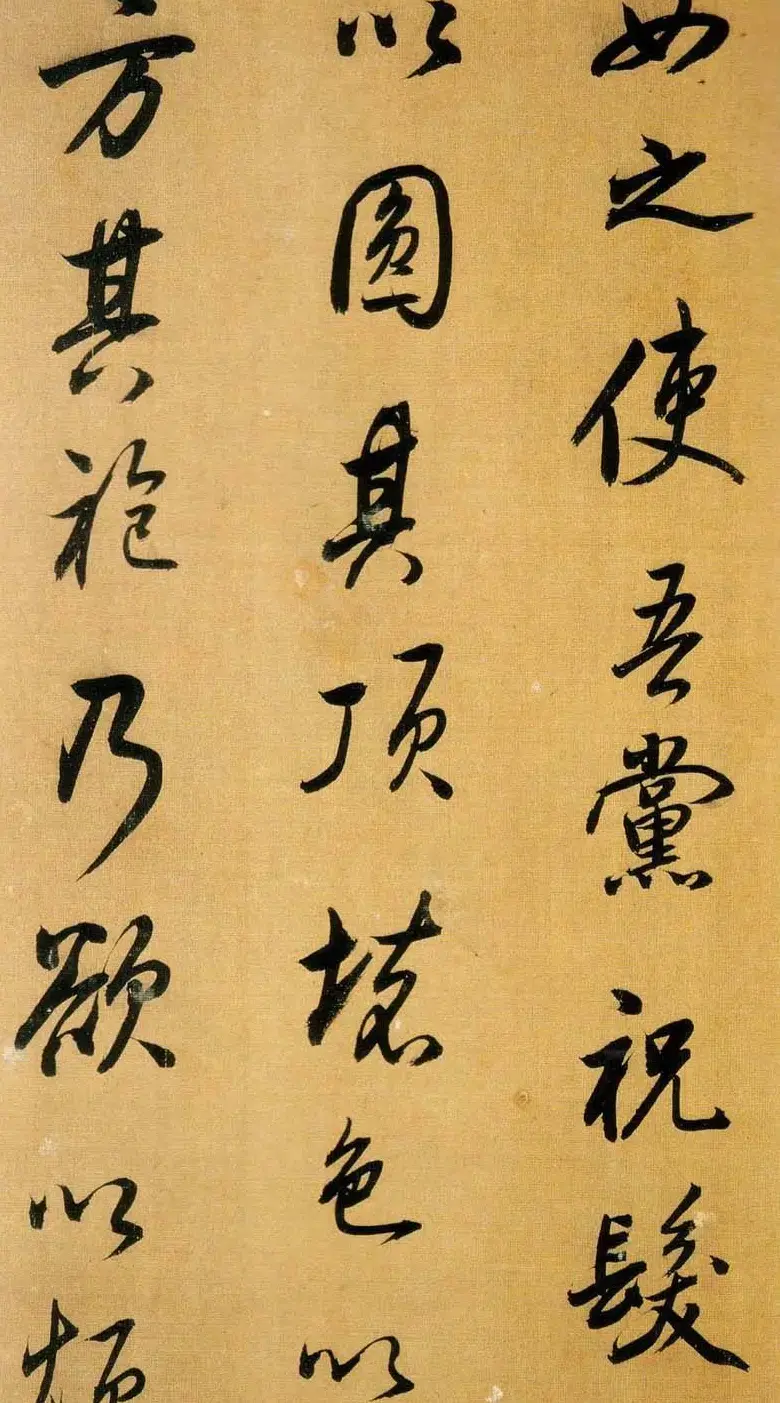 之使吾黨祝髮
以圓其頂壞色以
方其袍乃欲以煩